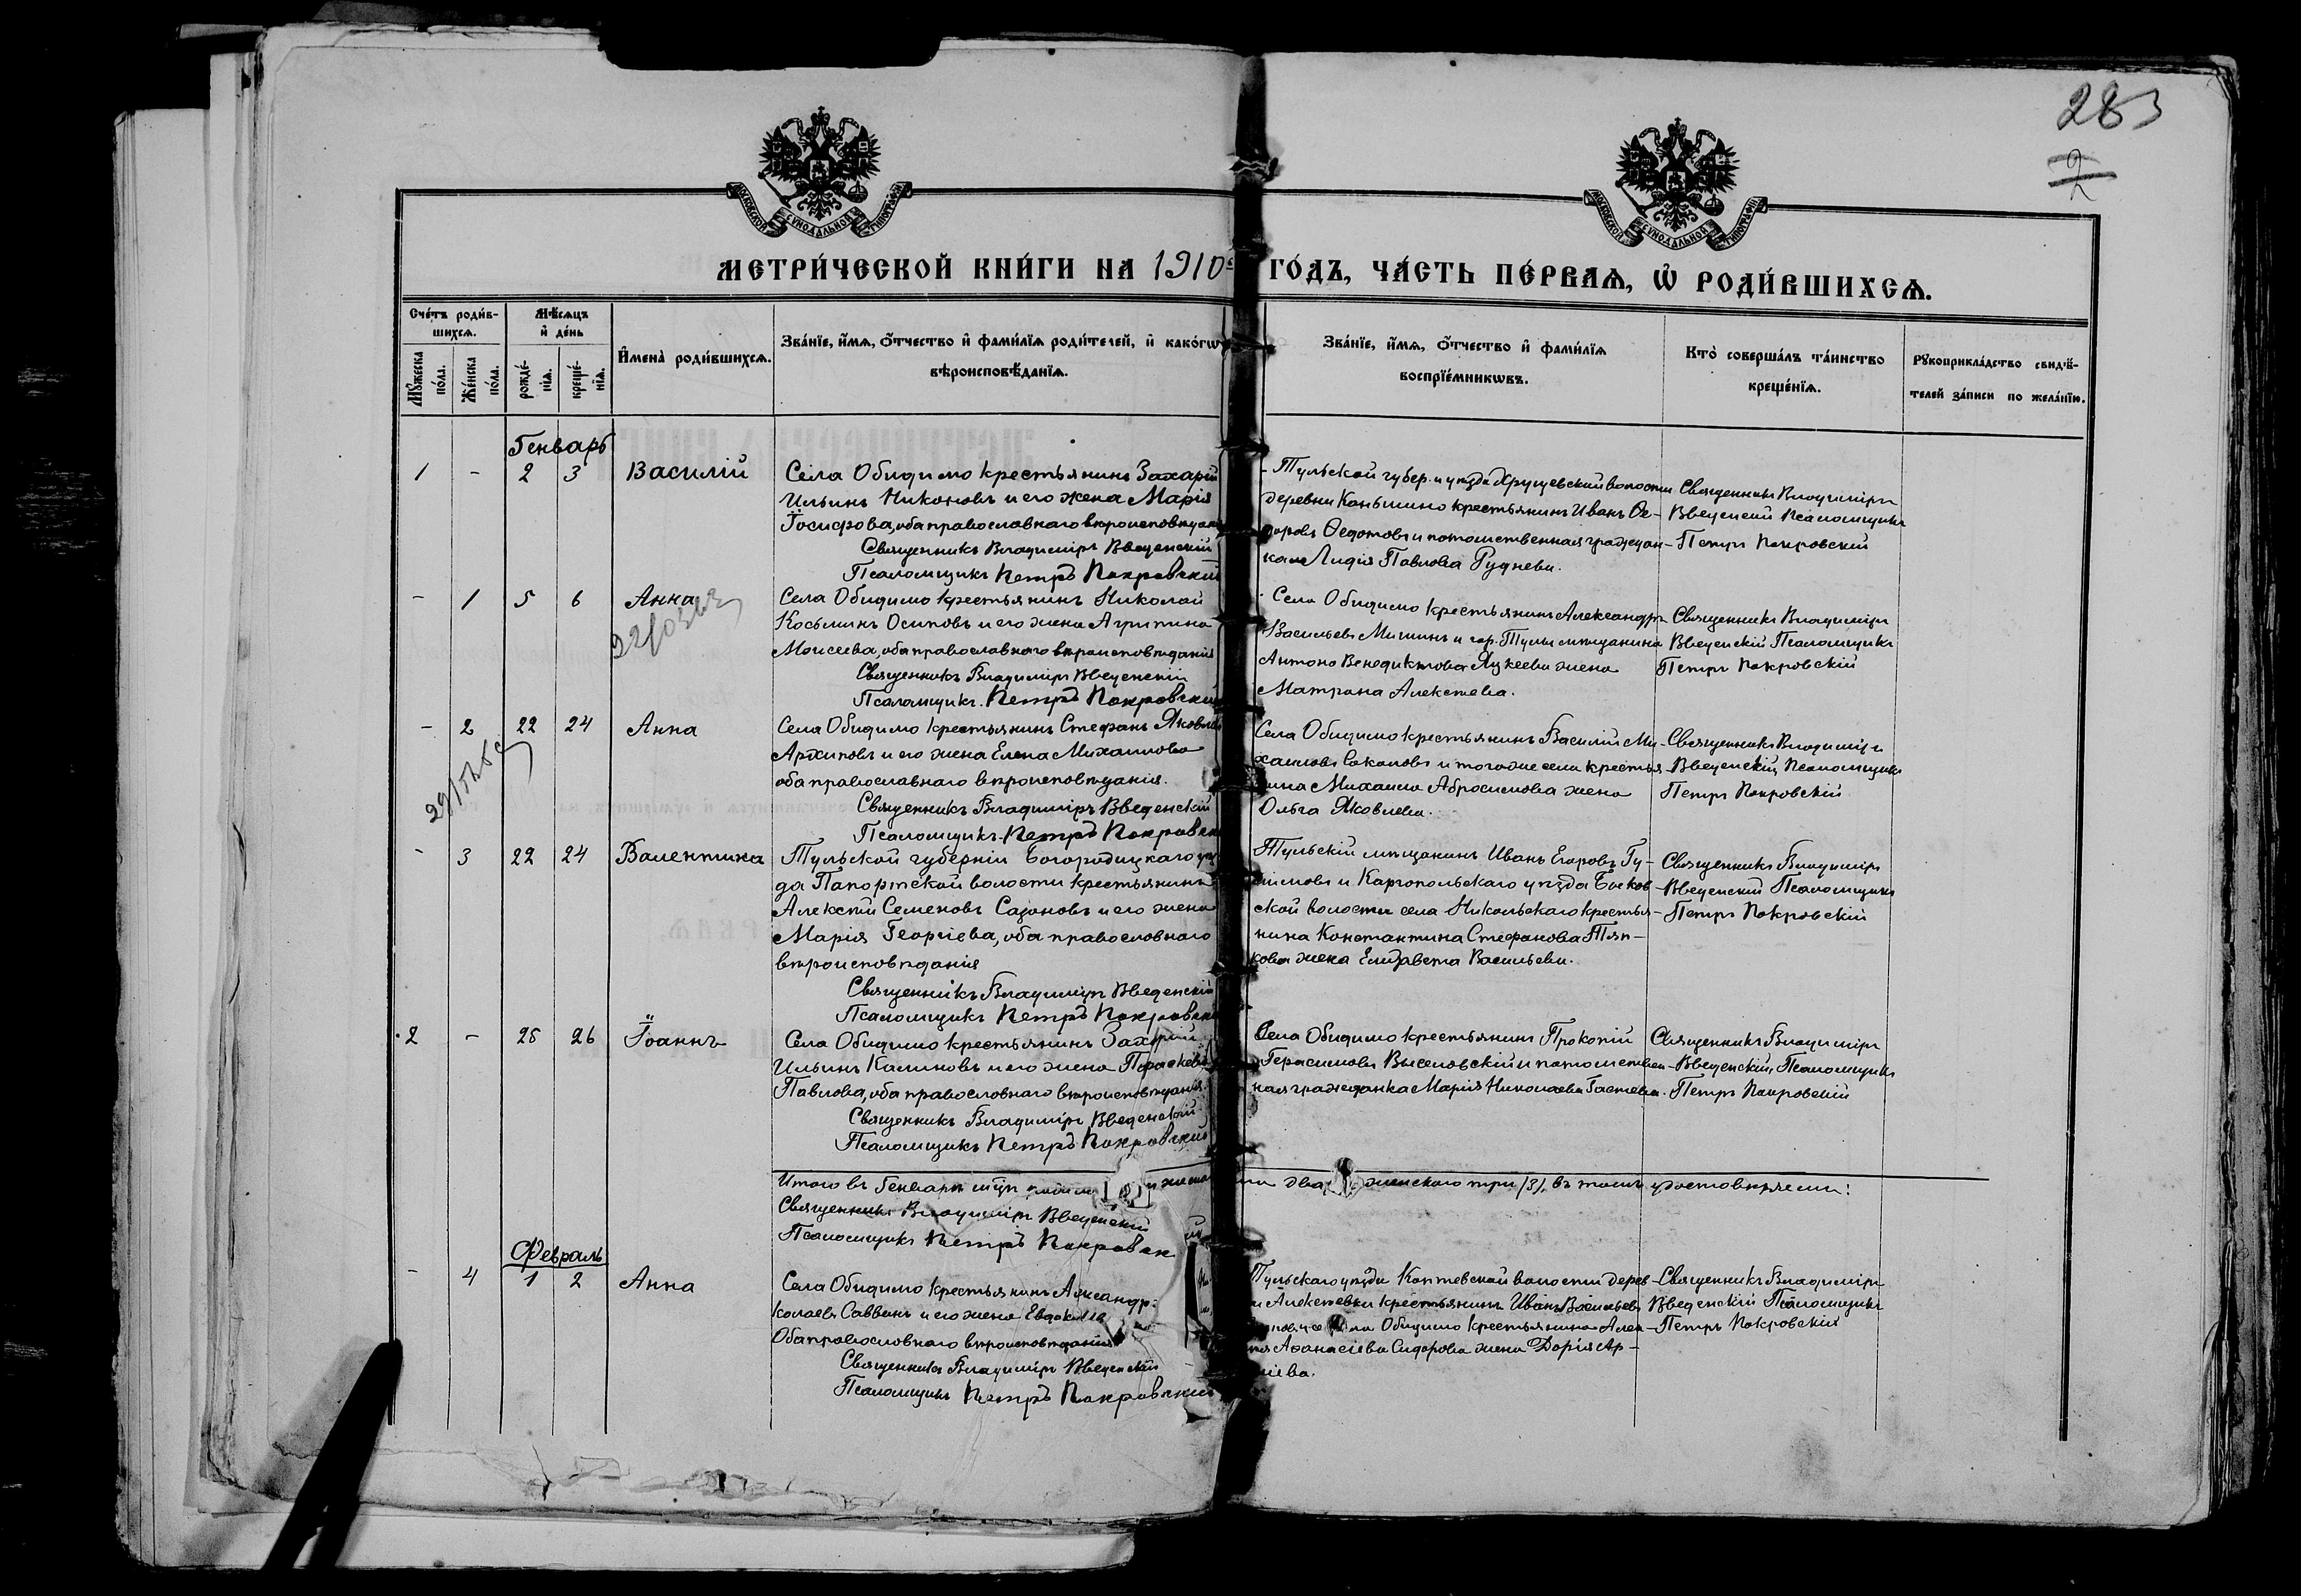 283
2
МОСКОВСКОЙ СѴНОДАЛЬНОЙ ТИПОГРАФІИ
МОСКОВСКОЙ СѴНОДАЛЬНОЙ ТИПОГРАФІИ
МЕТРИ́ЧЕСКОЙ КНИ́ГИ НА 1910й ГО́ДЪ, ЧА́СТЬ ПЕ́РВАѦ, Ѡ҆ РОДИ́ВШИХСѦ.
Сче́тъ роди́в-
шихсѧ.
Мꙋ́жеска по́ла.
Же́нска по́ла.
Мѣ́сѧцъ
и҆ де́нь
рожде́-
нїѧ.
креще́-
нїѧ.
И҆мена̀ роди́вшихсѧ.
Зва́нїе, и҆́мѧ, ѻ҆́тчество и҆ фами́лїѧ роди́телей, и҆ како́гѡ
вѣроисповѣ́данїѧ.
Зва́нїе, и҆́мѧ, ѻ҆́тчество и҆ фами́лїѧ
воспрїе́мникѡвъ.
Кто̀ соверша́лъ та́инство
креще́нїѧ.
Рꙋкоприкла́дство свидѣ́-
телей за́писи по жела́нїю.
Генварь
1 - 2 3 Василій
Села Обидимо крестьянинъ Захарій
Ильинъ Никоновъ и его жена Марія
Іосифова, оба православнаго вѣроисповѣдан
Священникъ Владиміръ Введенскій
Псаломщикъ Петръ Покровскій
Тульской губер. и уѣзда Хрущевской волости
деревни Коньшино крестьянинъ Иванъ Ѳе-
доровъ Ѳедотовъ и потомственная граждан-
ка Лидія Павлова Руднева.
Священникъ Владиміръ
Введенскій Псаломщикъ
Петръ Покровскій
- 1 5 6 Анна
Села Обидимо крестьянинъ Николай
Косьминъ Осиповъ и его жена Агриппина
Моисеева, оба православнаго вѣроисповѣданія
Священникъ Владиміръ Введенскій
Псаломщикъ Петръ Покровскій
Села Обидимо крестьянинъ Александръ
Васильевъ Мишинъ и гор. Тулы мѣщанина
Антона Венедиктова жена
Матрона Алексѣева.
Священникъ Владиміръ
Введенскій Псаломщикъ
Петръ Покровскій
- 2 22 24 Анна
Села Обидимо крестьянинъ Стефанъ Яковлевъ
Архиповъ и его жена Елена Михаилова
оба православнаго вѣроисповѣданія.
Священникъ Владиміръ Введенскій
Псаломщикъ Петръ Покровск
Села Обидимо крестьянинъ Василій Ми-
хаиловъ Соколовъ и тогоже села крестья-
нина Михаила Абросимова жена
Ольга Яковлева.
Священникъ Владиміръ
Введенскій Псаломщикъ
Петръ Покровскій
- 3 22 24 Валентина
Тульской губерніи Богородицкаго уѣз
да Папортской волости крестьянинъ
Алексѣй Семеновъ Сазоновъ и его жена
Марія Георгіева, оба православнаго
вѣроисповѣданія
Священникъ Владиміръ Введенскій
Псаломщикъ Петръ Покровск
Тульскій мѣщанинъ Иванъ Егоровъ
и Каргопольскаго уѣзда
ской волости села Никольскаго крестья-
нина Константина Стефанова Тяп-
кова жена Елизавета Васильева.
Священникъ Владиміръ
Введенскій Псаломщикъ
Петръ Покровскій
2 - 25 26 Іоаннъ
Села Обидимо крестьянинъ Захарій
Ильинъ Калиновъ и его жена Параскева
Павлова, оба православнаго вѣроисповѣданія.
Священникъ Владиміръ Введенскій
Псаломщикъ Петръ Покровскій
Села Обидимо крестьянинъ Прокопій
Герасимовъ Выселовскій и потомствен-
ная гражданка Марія Николаева Гастева.
Священникъ Владиміръ
Введенскій Псаломщикъ
Петръ Покровскій
Итого въ Генварѣ два женскаго три (3), въ томъ удостовѣряемъ:
Священникъ Владиміръ Введенскій
Псаломщикъ Петръ Покровск
Февраль
- 4 1 2 Анна
Села Обидимо крестьянинъ Александръ
колаевъ Саввинъ и его жена Евдокія
Оба православнаго вѣроисповѣданія
Священникъ Владиміръ Введенскій
Псаломщикъ Петръ Покровскій
Тульскаго уѣзда Коптевской волости дерев-
и Алексѣевки крестьянинъ Иванъ Васильевъ
Обидимо крестьянина Алек-
Аѳанасіева Сидорова жена Дарія Ар-
іева.
Священникъ Владиміръ
Введенскій Псаломщикъ
Петръ Покровскій